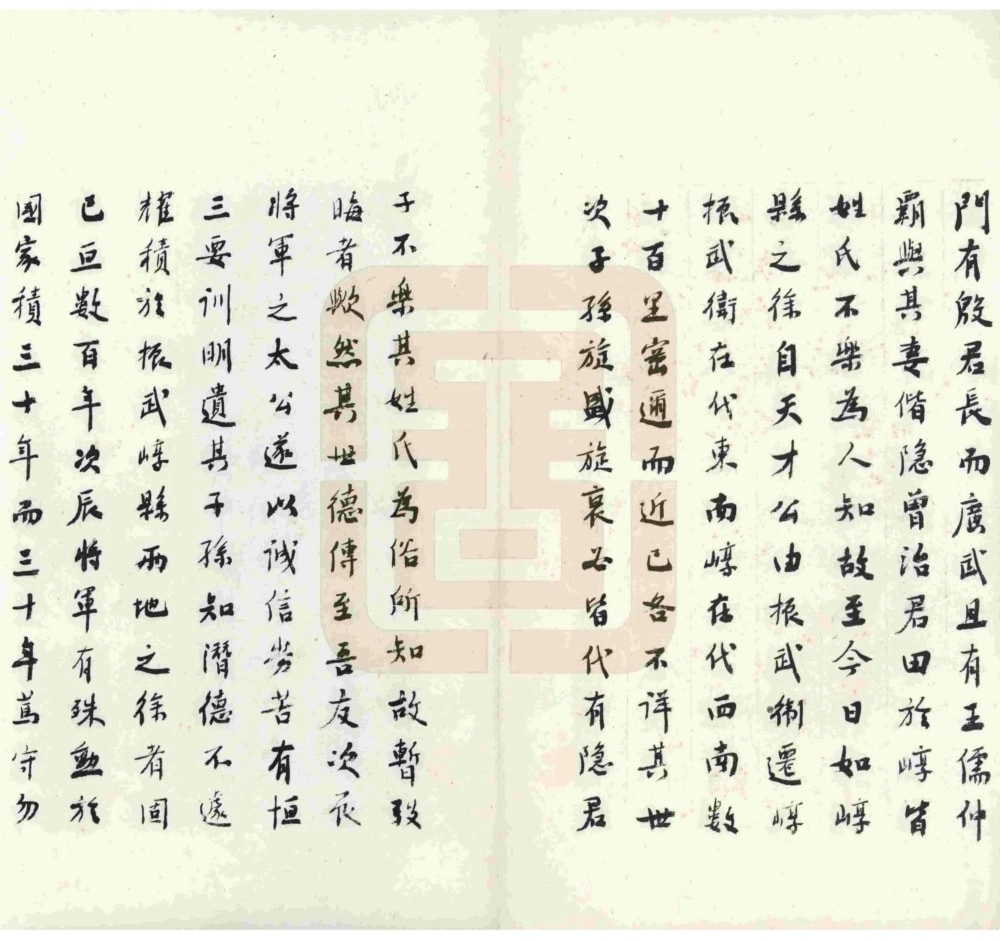 門有殷君長而廣武且有王儒仲
霸與其妻偕隐曾治君田於崞皆
姓氏不樂為人知故至今日如崞
縣之徐自天才公由振武衛遷崞
振武衛在代東南崞在代西南數
十百里密邇而近已各不詳其世
次子孫旋盛旋衰必皆代有隐君
子不樂其姓氏為俗所知故暫致
晦者歟然其世德傳至吾友次辰
將軍之太公遂以誠信勞苦有恒
三要訓明遺其子孫知潛德不遠
耀積於振武崞縣兩地之徐者固
已亘數百年次辰將軍有殊勳於
國家積三十年而三十年篤守勿